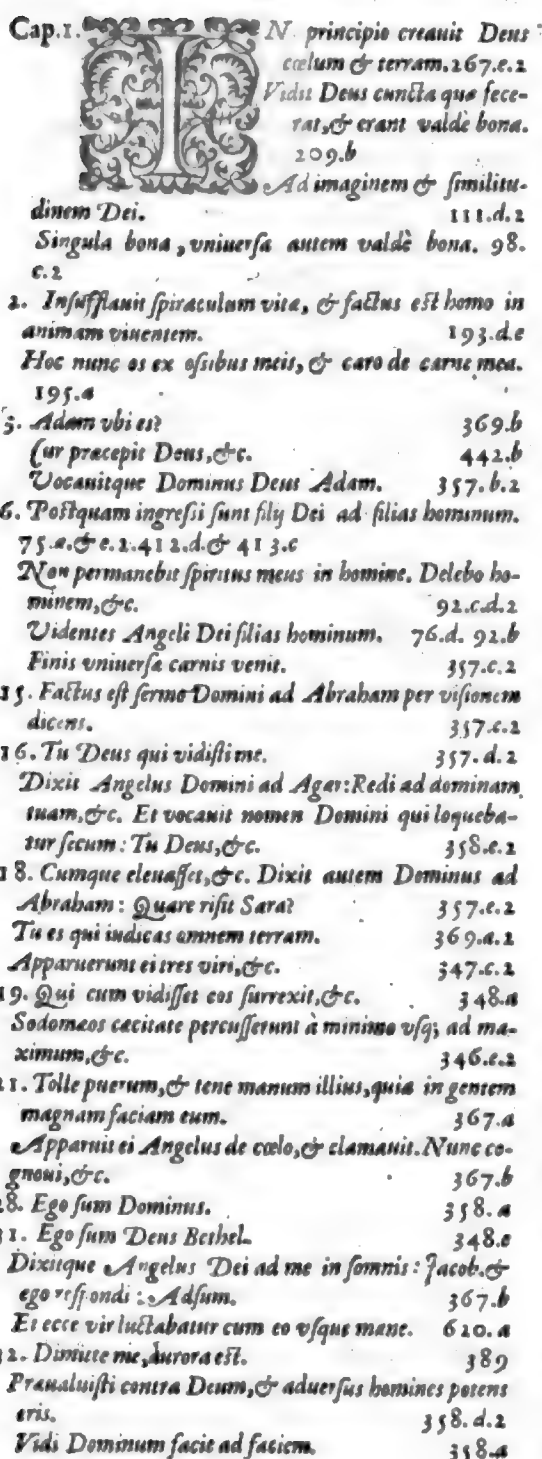 Cap.1. IN principio creauit Deus
cœlum & terram. 267.e.2
Vidit Deus cuncta quæ fece-
rat, & erant valdè bona.
209.b
Ad imaginem & similitu-
dinem Dei. 111.d.2
Singula bona, vniuersa autem valdè bona. 98.
c.2
2. Insufflauit spiraculum vitæ, & factus est homo in
animam viuentem. 193.d.e
Hoc nunc os ex ossibus meis, & caro de carne mea.
195.a
3. Adam vbi es? 369.b
Cur præcepit Deus, &c. 442.b
Vocauitque Dominus Deus Adam. 357.b.2
6. Postquam ingressi sunt filij Dei ad filias hominum.
75.a. & e.2. 412.d. & 413.c
Non permanebit spiritus meus in homine. Delebo ho-
minem, &c. 92.c.d.2
Videntes Angeli Dei filias hominum. 76.d. 92.b
Finis vniuersæ carnis venit. 357.c.2
15. Factus est sermo Domini ad Abraham per visionem
dicens. 357.c.2
16. Tu Deus qui vidisti me. 357.d.2
Dixit Angelus Domini ad Agar: Redi ad dominam
tuam, &c. Et vocauit nomen Domini qui loqueba-
tur secum: Tu Deus, &c. 358.e.2
18. Cumque eleuasset, &c. Dixit autem Dominus ad
Abraham: Quare risit Sara? 357.e.2
Tu es qui iudicas omnem terram. 369.a.2
Apparuerunt ei tres viri, &c. 347.c.2
19. Qui cum vidisset eos surrexit, &c. 348.a
Sodomæos cæcitate percusserunt à minimo vsq; ad ma-
ximum, &c. 346.e.2
21. Tolle puerum, & tene manum illius, quia in gentem
magnam faciam eum. 367.a
Apparuit ei Angelus de cœlo, & clamauit. Nunc co-
gnoui, &c. 367.b
28. Ego sum Dominus. 358.a
31. Ego sum Deus Bethel. 348.e
Dixitque Angelus Dei ad me in somnis: Jacob. &
ego respondi: Adsum. 367.b
Et ecce vir luctabatur cum eo vsque mane. 620.a
32. Dimitte me, aurora est. 389
Præualuisti contra Deum, & aduersus homines potens
eris. 358.d.2
Vidi Dominum facie ad faciem. 358.a